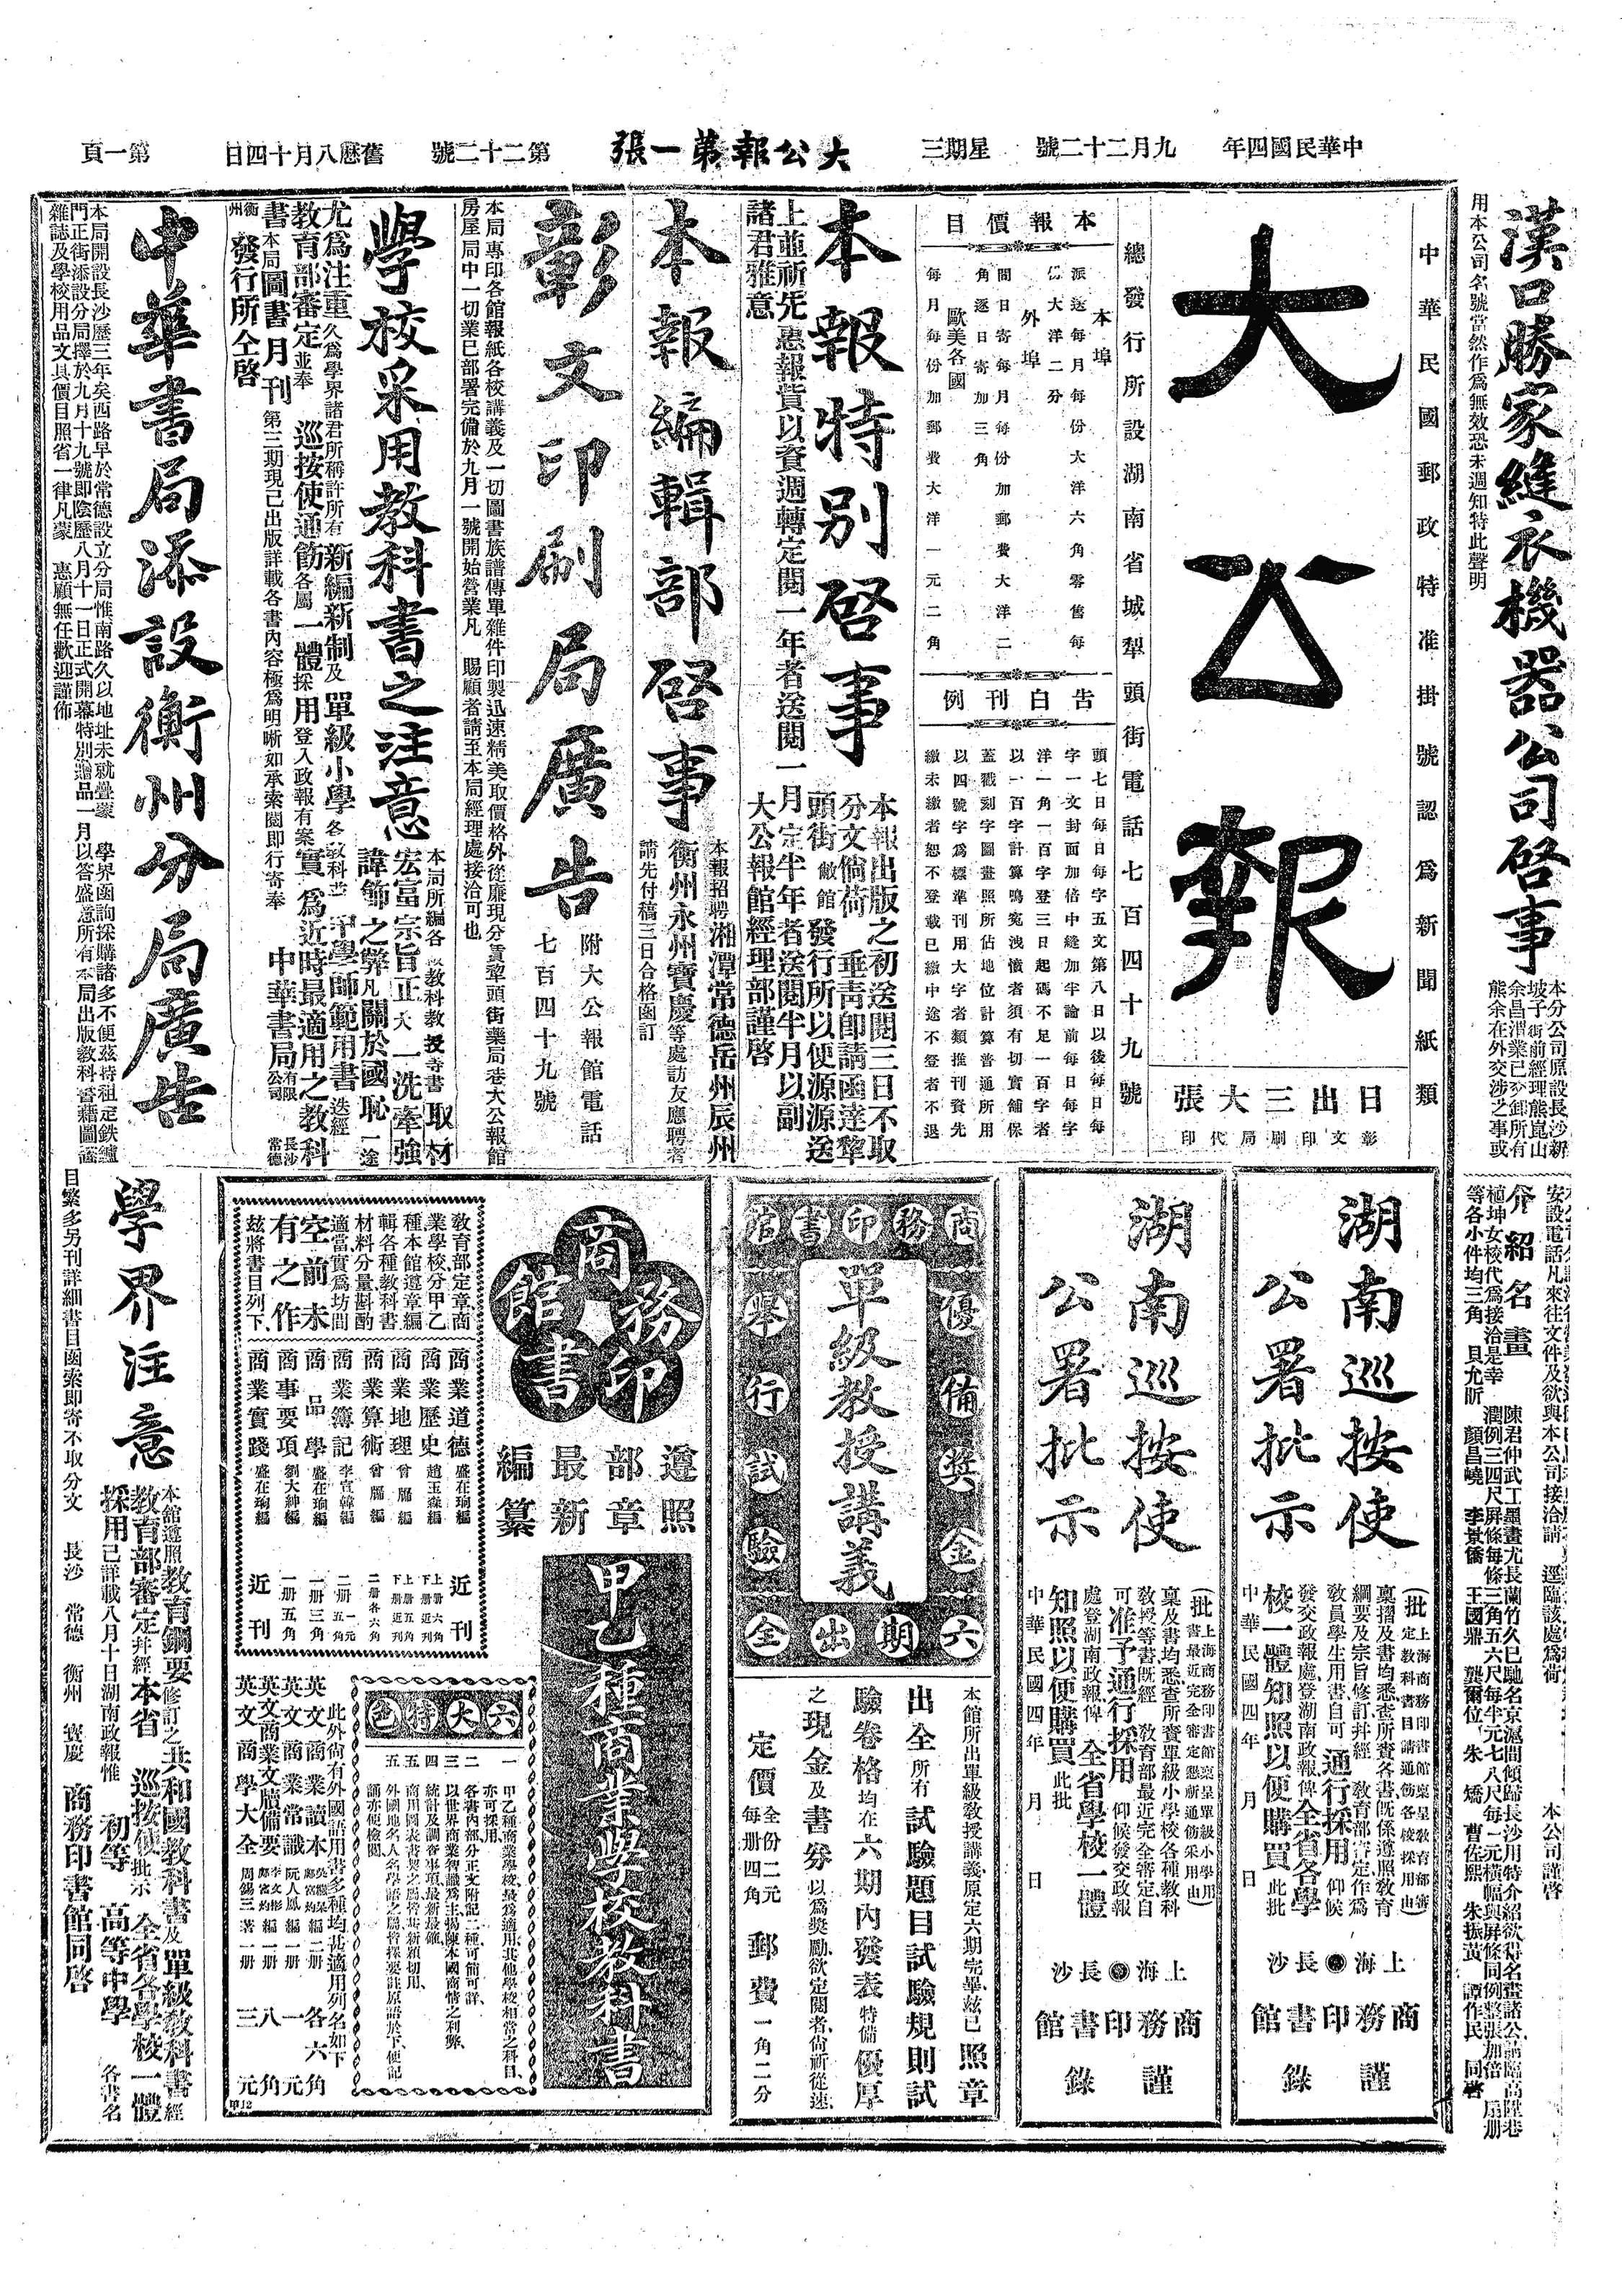 中華民國四年 九月二十二號 星期三 大公報第一張 第二十二號 舊歷八月十四日 第一頁
漢口勝家縫衣機器公司啓事
本分公司原設長沙新
坡子街前經理熊崑山
余昌渭業已交卸所有
熊余在外交涉之事或
用本公司名號當然作爲無效恐未週知特此聲明
安設電話凡來往文件及欲與本公司接洽請 逕臨該處爲荷 本公司謹啓
介紹名畫
陳君仲武工墨畫尤長蘭竹久已馳名京滬間傾歸長沙用特介紹欲得名畫諸公請臨高陞巷
植坤女校代爲接洽是幸 潤例三四尺屏條每條三角五六尺每半元七八尺每一元橫幅與屏條同例整張加倍 扇册
等各小件均三角 貝允昕 顏昌嶢 李景僑 王國鼎 龔爾位 朱矯 曹佐熙 朱振黃 譚作民 同啓
中華民國郵政特准掛號認爲新聞紙類
大公報
日出三大張
彰文印刷局代印
總發行所設湖南省城犁頭街電話七百四十九號
本報價目
本埠
派送每月每份大洋六角零售每
份大洋二分
外埠
間日寄每月每份加郵費大洋二
角逐日寄加三角
歐美各國
每月每份加郵費大洋一元二角
告白刊例
頭七日每日每字五文第八日以後每日每
字一文封面加倍中縫加半論前每日每字
洋一角一百字登三日起碼不足一百字者
以一百字計算鳴寃洩憤者須有切實舖保
蓋戳刻字圖畫照所佔地位計算普通所用
以四號字爲標準刊用大字者類推刊資先
繳未繳者恕不登載已繳中途不登者不退
本報特別啓事
本報出版之初送閱三日不取
分文倘荷 垂青卽請函達犂
頭街敝館發行所以便源源送
上並祈先惠報貲以資週轉定閱一年者送閱一月定半年者送閱半月以副
諸君雅意 大公報館經理部謹啓
本報編輯部啓事
本報招聘湘潭常德岳州辰州
衡州永州寶慶等處訪友應聘者
請先付稿三日合格函訂
彰文印刷局廣告
附大公報館電話
七百四十九號
本局專印各館報紙各校講義及一切圖書族譜傳單雜件印製迅速精美取價格外從廉現分賃犂頭街藥局巷大公報館
房屋局中一切業已部署完備於九月一號開始營業凡 賜顧者請至本局經理處接洽可也
學校采用教科書之注意
本局所編各教科教授等書取材
宏富宗旨正大一洗牽強
諱飾之弊凡關於國恥一途
尤爲注重久爲學界諸君所稱許所有新編新制及單級小學各教科並中學師範用書迭經
教育部審定並奉 巡按使通飭各屬一體採用登入政報有案實爲近時最適用之教科
書本局圖書月刊第三期現已出版詳載各書內容極爲明晰如承索閱卽行寄奉 中華書局有限公司 長沙 常德
衡州發行所仝啓
中華書局添設衡州分局廣告
本局開設長沙歷三年矣西路早於常德設立分局惟南路久以地址未就疊蒙 學界函詢採購諸多不便茲特租定鉄爐
門正街添設分局擇於九月十九號卽陰歷八月十一日正式開幕特別贈品一月以答盛意所有本局出版教科書籍圖
雜誌及學校用品文具價目照省一律凡蒙 惠顧無任歡迎謹佈
湖南巡按使
公署批示
（批上海商務印書館稟呈敎育部審
定敎科書目請通飭各校採用由）
稟摺及書均悉查所賫各書旣係遵照敎育
綱要及宗旨修訂幷經 敎育部審定作爲
敎員學生用書自可通行採用仰候
發交政報處登湖南政報俾全省各學
校一體知照以便購買此批
中華民國四年 月 日
上海 長沙
商務印書館
謹錄
湖南巡按使
公署批示
（批上海商務印書館稟呈單級小學用
書最近完全審定懇新通飭采用由）
稟及書均悉查所賫單級小學校各種敎科
敎授等書旣經 敎育部最近完全審定自
可准予通行採用 仰候發交政報
處登湖南政報俾全省學校一體
知照以便購買此批
中華民國四年 月 日
上海 長沙
商務印書館
謹錄
商務印書館
優備獎金
單級教授講義
舉行試驗
六期出全
本館所出單級敎授講義原定六期完畢茲已照章
出全所有試驗題目試驗規則試
驗卷格均在六期內發表特備優厚
之現金及書券以爲獎勵欲定閱者尙祈從速
定價全份二元每册四角 郵費一角二分
商務印書館
遵照部章最新編纂
甲乙種商業學校教科書
敎育部定章、商
業學校分甲乙
種本館遵章編
輯各種敎科書
材料分量斟酌
適當實爲坊間
空前未
有之作
茲將書目列下、
商業道德 盛在珦編 近刊
商業歷史 趙玉森編 上册六角 下册近刊
商業地理 曾牖編 上册五角 下册近刊
商業算術 曾牖編 二册各六角
商業簿記 李宣韓編 二册一元五角
商品學 盛在珦編 一册三角
商事要項 劉大紳編 一册五角
商業實踐 盛在珦編 近刊
六大特色
一 甲乙種商業學校最爲適用其他學校相當之科目、
亦可採用、
二 各書內部分正文附記二種可簡可詳、
三 以世界商業智識爲主揚陳本國商情之利弊、
四 統計及調查事項最新最確、
五 商用圖表書契之屬皆甚新穎切用、
五 外國地名人名學語之屬皆擇要註原語於下、便記
誦亦便檢閱、
此外尙有外國語用書多種均甚適用列名如下
英文商業讀本 二册 各六角
英文商業常識 阮人鳳編 一册 一元
英文商業文牘備要 一册 八角
英文商學大全 周錫三著 一册 三元
學界注意
本館遵照教育綱要修訂之共和國教科書及單級教科書經
教育部審定幷經本省 巡按使批示 全省各學校一體
採用已詳載八月十日湖南政報惟 初等 高等中學 各書名
目繁多另刊詳細書目函索卽寄不取分文 長沙 常德 衡州 寶慶 商務印書館同啓